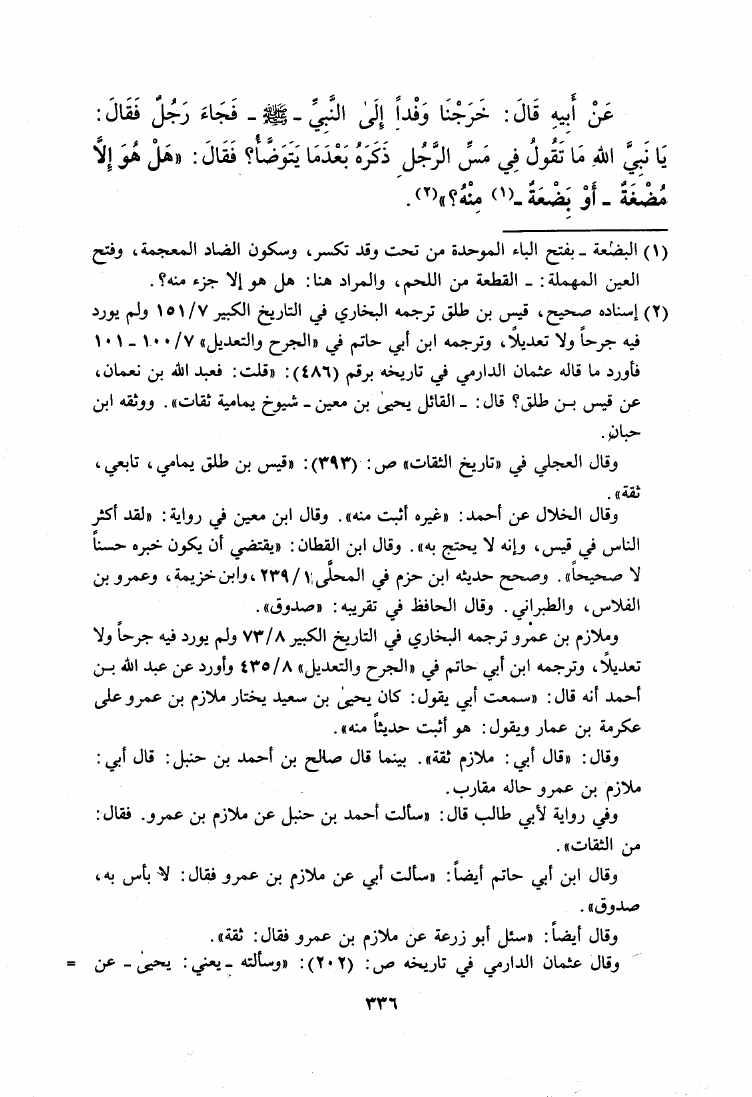 عَنْ أَبِيهِ قَالَ: خَرَجْنَا وَفْداً إِلَىٰ النَّبِيِّ - ﷺ - فَجَاءَ رَجُلٌ فَقَالَ:
يَا نَبِيَّ اللهِ مَا تَقُولُ فِي مَسِّ الرَّجُلِ ذَكَرَهُ بَعْدَمَا يَتَوَضَّأُ؟ فَقَالَ: «هَلْ هُوَ إِلَّا
مُضْغَةٌ - أَوْ بَضْعَةٌ -(١) مِنْهُ؟»(٢).
(١) البضْعة - بفتح الباء الموحدة من تحت وقد تكسر، وسكون الضاد المعجمة، وفتح
العين المهملة: - القطعة من اللحم، والمراد هنا: هل هو إلا جزء منه؟.
(٢) إسناده صحيح، قيس بن طلق ترجمه البخاري في التاريخ الكبير ١٥١/٧ ولم يورد
فيه جرحاً ولا تعديلاً، وترجمه ابن أبي حاتم في «الجرح والتعديل» ١٠٠/٧ - ١٠١
فأورد ما قاله عثمان الدارمي في تاريخه برقم (٤٨٦): «قلت: فعبد الله بن نعمان،
عن قيس بن طلق؟ قال: - القائل يحيىٰ بن معين - شيوخ يمامية ثقات». ووثقه ابن
حبان.
وقال العجلي في «تاريخ الثقات» ص: (٣٩٣): «قيس بن طلق يمامي، تابعي،
ثقة».
وقال الخلال عن أحمد: «غيره أثبت منه». وقال ابن معين في رواية: «لقد أكثر
الناس في قيس، وإنه لا يحتج به». وقال ابن القطان: «يقتضي أن يكون خبره حسناً
لا صحيحاً». وصحح حديثه ابن حزم في المحلَّى ٢٣٩/١، وابن خزيمة، وعمرو بن
الفلاس، والطبراني. وقال الحافظ في تقريبه: «صدوق».
وملازم بن عمرو ترجمه البخاري في التاريخ الكبير ٧٣/٨ ولم يورد فيه جرحاً ولا
تعديلاً، وترجمه ابن أبي حاتم في «الجرح والتعديل» ٤٣٥/٨ وأورد عن عبد الله بن
أحمد أنه قال: «سمعت أبي يقول: كان يحيىٰ بن سعيد يختار ملازم بن عمرو على
عكرمة بن عمار ويقول: هو أثبت حديثاً منه».
وقال: «قال أبي: ملازم ثقة». بينما قال صالح بن أحمد بن حنبل: قال أبي:
ملازم بن عمرو حاله مقارب.
وفي رواية لأبي طالب قال: «سألت أحمد بن حنبل عن ملازم بن عمرو. فقال:
من الثقات».
وقال ابن أبي حاتم أيضاً: «سألت أبي عن ملازم بن عمرو فقال: لا بأس به،
صدوق».
وقال أيضاً: «سئل أبو زرعة عن ملازم بن عمرو فقال: ثقة».
وقال عثمان الدارمي في تاريخه ص: (٢٠٢): «وسألته - يعني: يحيىٰ - عن =
٣٣٦